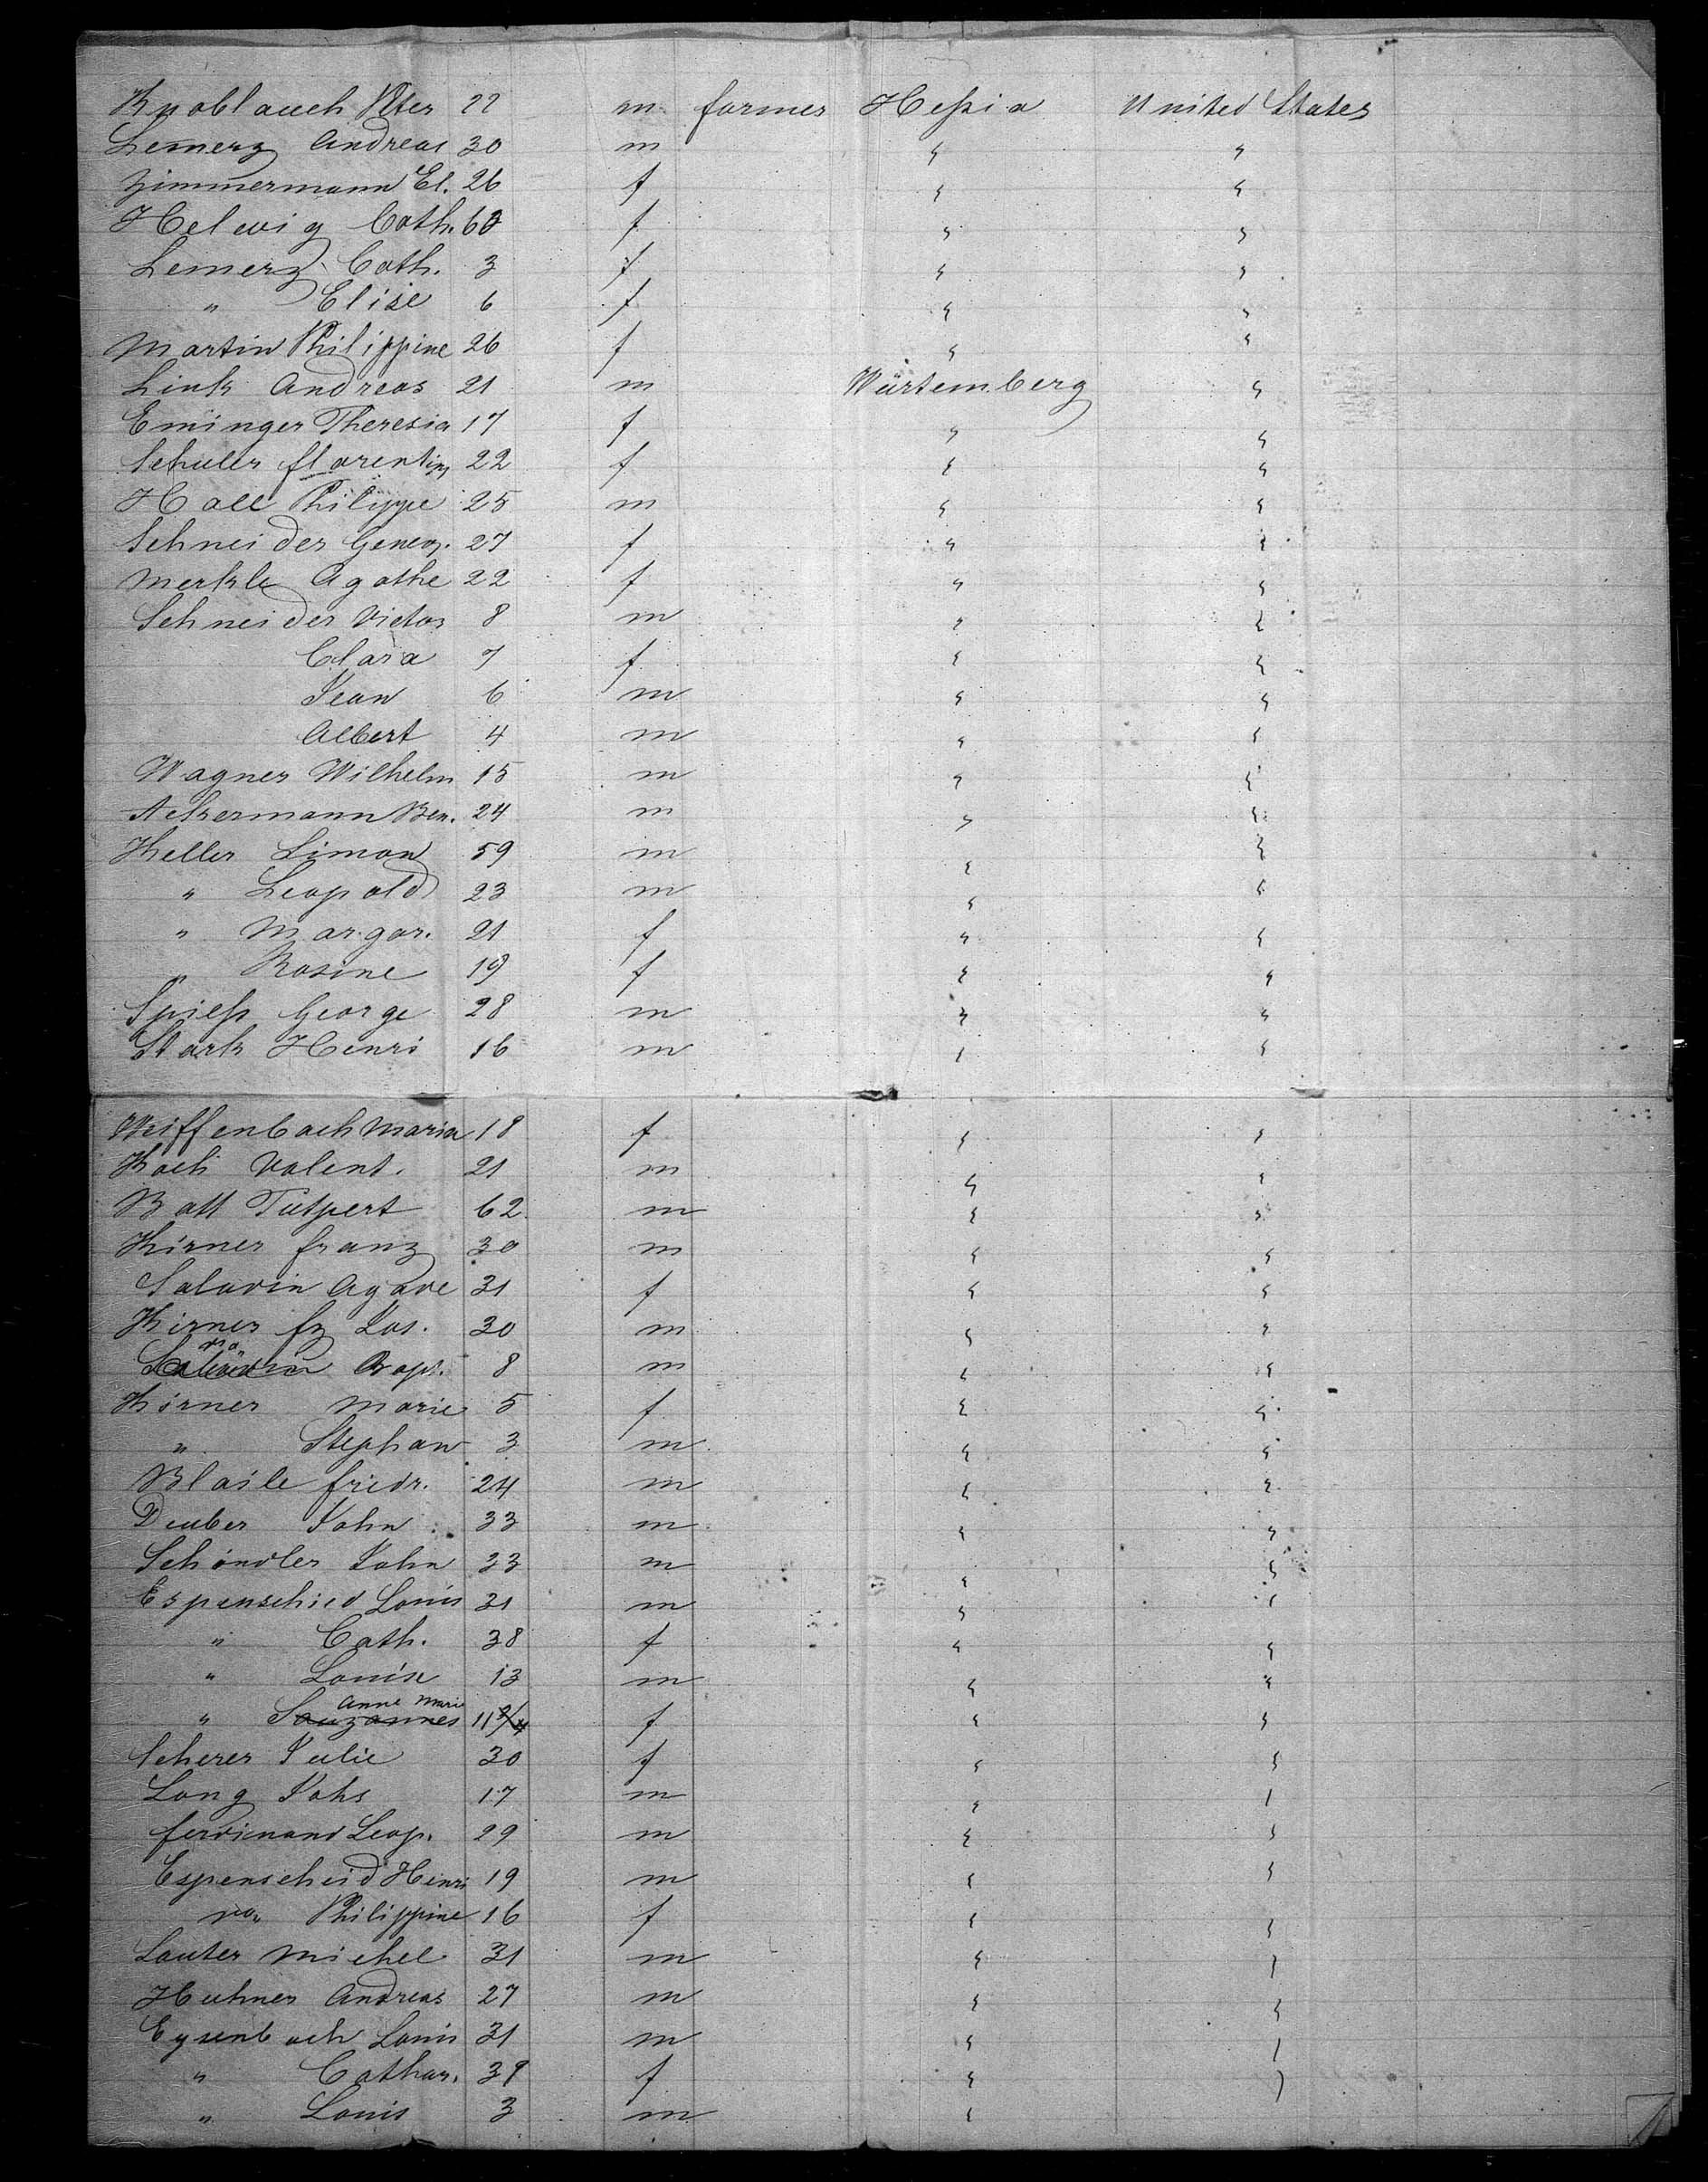 Knoblauch Peter 22 m farmer Heßia United States
Lemerz Andreas 30 m " "
Zimmermann El. 26 f " "
Helwig Cath. 62 f " "
Lemerz Cath. 3 f " "
" Elise 6 f " "
Martin Philippine 26 f " "
Link Andreas 21 m Würtemberg "
Eminger Theresia 17 f " "
Schuler florentine 22 f " "
Hall Philippe 25 m " "
Schneider Genev. 27 f " "
Merkle Agathe 22 f " "
Schneider Victor 8 m " "
Clara 7 f " "
Jean 6 m " "
Albert 4 m " "
Wagner Wilhelm 15 m " "
Ackermann Ben. 24 m " "
Heller Simon 59 m " "
" Leopold 23 m " "
" Margar. 21 f " "
" Rosine 19 f " "
Spieß George 28 m " "
Stark Henri 16 m " "
Weiffenbach Maria 18 f " "
Koch Valent. 21 m " "
Batt 62 m " "
Hirner franz 30 m " "
Saladin Agave 31 f " "
Hirner fz Jos. 30 m " "
Bapt. 8 m " "
Hirner Marie 5 f " "
" Stephan 3 m " "
Blaile fridr. 24 m " "
Deuber John 33 m " "
Schöndler John 33 m " "
Espenschied Louis 31 m " "
" Cath. 38 f " "
" Louise 13 m " "
" Anne Marie 11 f " "
Scherer Julie 30 f " "
Long Johs 17 m " "
ferdinand Leop. 29 m " "
Espenscheid Henri 19 m " "
" Philippine 16 f " "
Lauter Michel 31 m " "
Huhner Andreas 27 m " "
Eysenbach Louis 31 m " "
" Cathar. 39 f " "
" Louis 3 m "